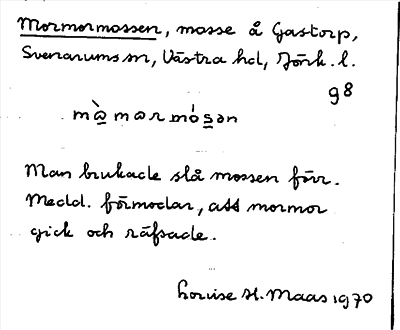 Mormormossen, mosse å Gastorp,
Svenarums sn, Västra hd, Jönk. l.
98
Man brukade slå mossen förr.
Medd. förmodar, att mormor
gick och räfsade.
Louise H. Maas 1970